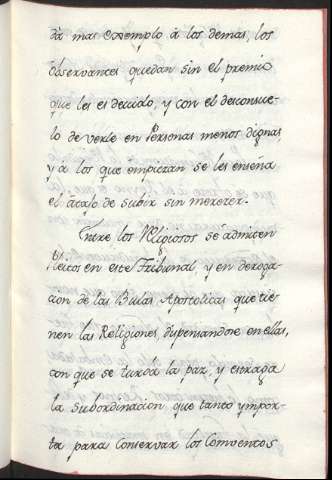 dà mas exemplo à los demas, los
observantes quedan sin el premio
que les es devido, y con el desconsue-
lo de verle en Personas menos dignas,
y à los que empiezan se les enseña
el atajo de subir sin merecer.
Entre los Religiosos se admiten
Pleitos en este Tribunal, y en deroga-
cion de las Bulas Apostolicas que tie-
nen las Religiones, dispensandose en ellas,
con que se turba la paz, y estraga
la subordinacion que tanto ympor-
ta para conservar los Conventos